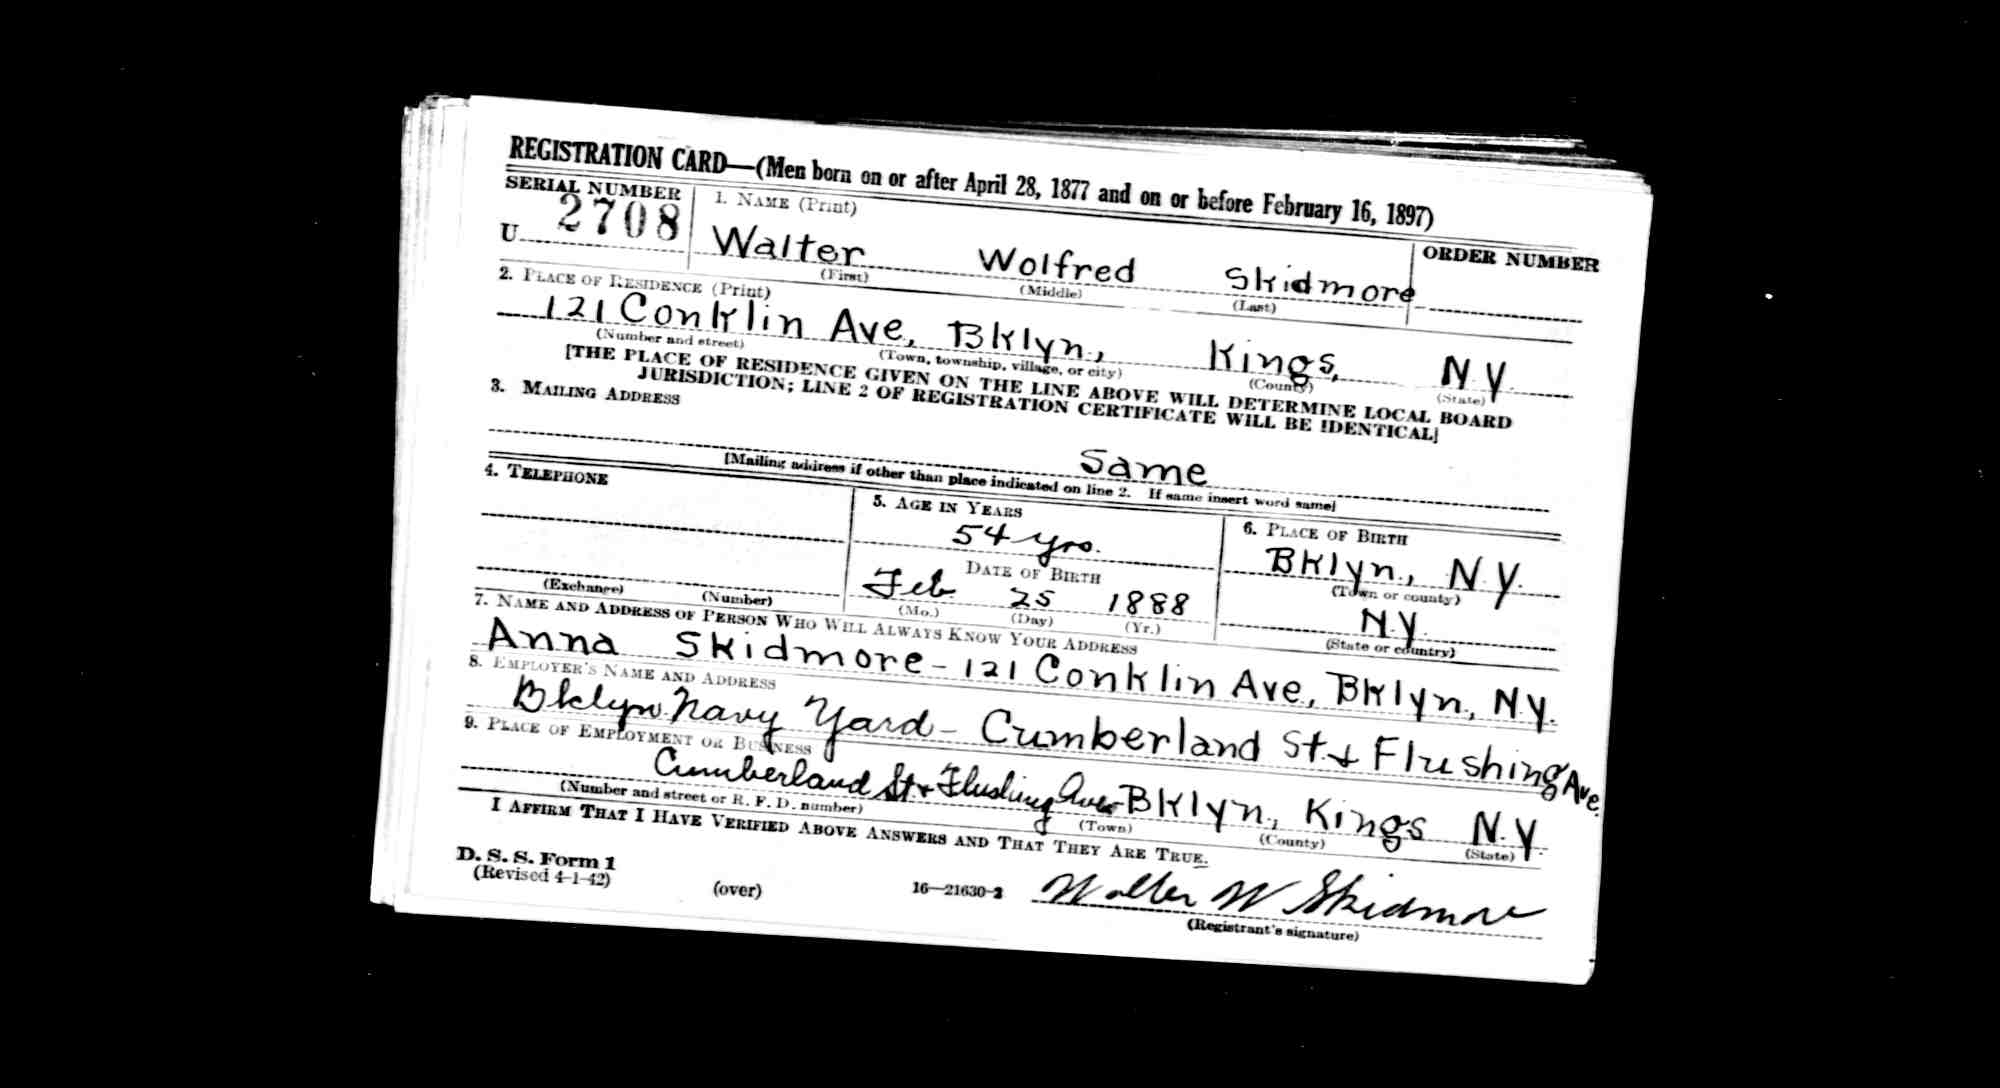 REGISTRATION CARD—(Men born on or after April 28, 1877 and on or before February 16, 1897)
SERIAL NUMBER
U 2708
1. NAME (Print)
ORDER NUMBER
Walter Wolfred Skidmore
(First) (Middle) (Last)
2. PLACE OF RESIDENCE (Print)
121 Conklin Ave, Bklyn, Kings, N.Y.
(Number and street) (Town, township, village, or city) (County) (State)
[THE PLACE OF RESIDENCE GIVEN ON THE LINE ABOVE WILL DETERMINE LOCAL BOARD
JURISDICTION; LINE 2 OF REGISTRATION CERTIFICATE WILL BE IDENTICAL]
3. MAILING ADDRESS
Same
[Mailing address if other than place indicated on line 2. If same insert word same]
4. TELEPHONE
(Exchange) (Number)
5. AGE IN YEARS
54 yrs.
DATE OF BIRTH
Feb 25 1888
(Mo.) (Day) (Yr.)
6. PLACE OF BIRTH
Bklyn., N.Y.
(Town or county)
N.Y.
(State or country)
7. NAME AND ADDRESS OF PERSON WHO WILL ALWAYS KNOW YOUR ADDRESS
Anna Skidmore - 121 Conklin Ave, Bklyn, N.Y.
8. EMPLOYER'S NAME AND ADDRESS
Bklyn Navy Yard - Cumberland St. & Flushing Ave.
9. PLACE OF EMPLOYMENT OR BUSINESS
Cumberland St. & Flushing Ave Bklyn, Kings N.Y.
(Number and street or R. F. D. number) (Town) (County) (State)
I AFFIRM THAT I HAVE VERIFIED ABOVE ANSWERS AND THAT THEY ARE TRUE.
D. S. S. Form 1
(Revised 4-1-42)
(over)
16—21630-2
Walter W Skidmore
(Registrant's signature)